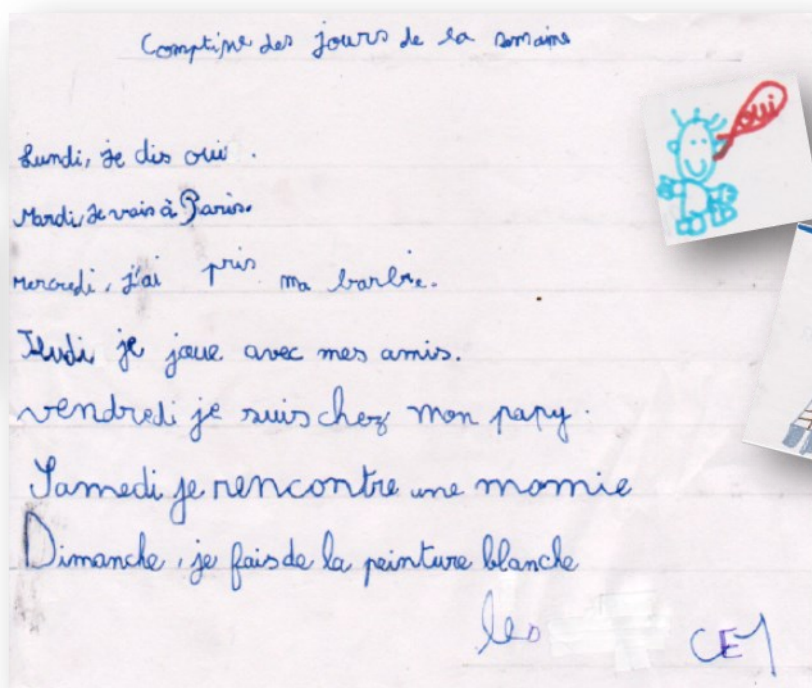 Comptine des jours de la semaine
oui
Lundi, je dis oui.
Mardi, je vais à Paris.
Mercredi, j'ai pris ma barbie.
Jeudi je joue avec mes amis.
vendredi je suis chez mon papy.
Samedi je rencontre une momie
Dimanche, je fais de la peinture blanche
les CE1